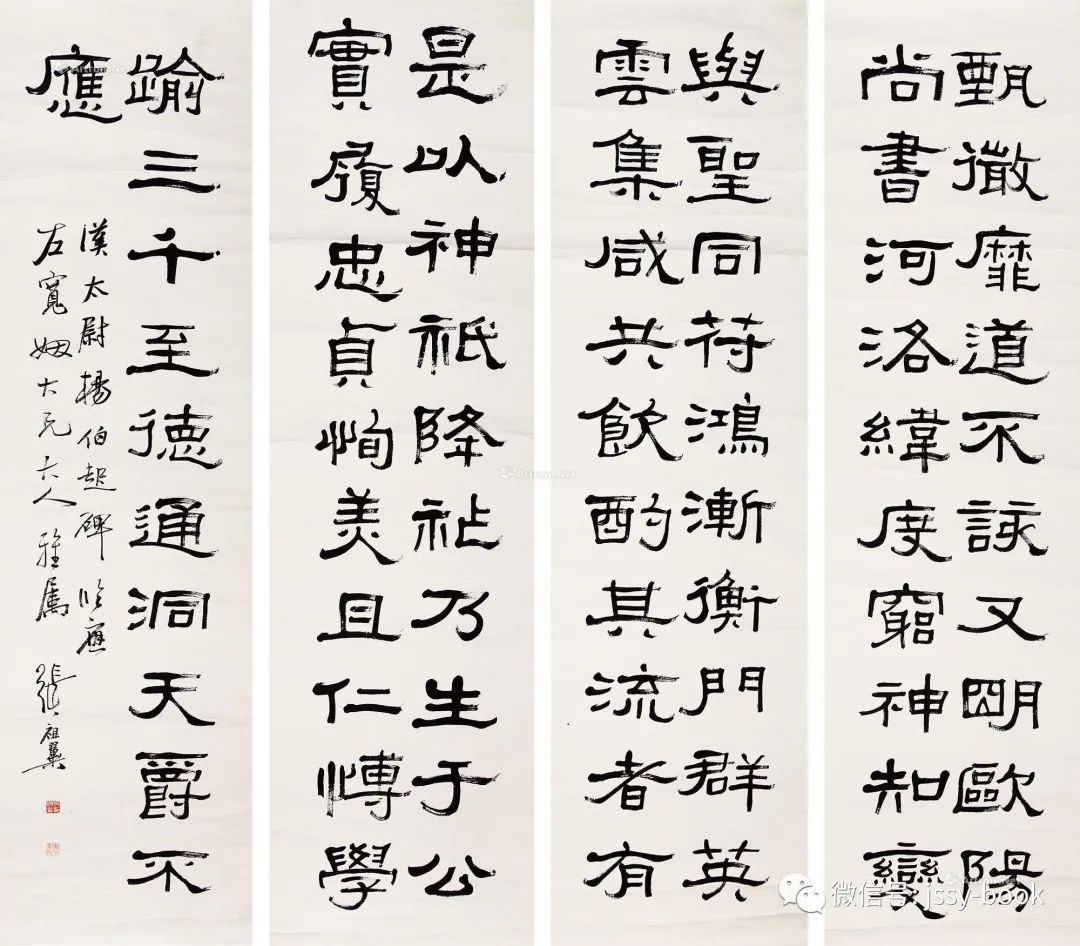 甄微靡道不該又明歐陽
尚書河洛緯度窮神知變
與聖同符鴻漸衡門群英
雲集咸共飲酌其流者有
是以神祇降祉乃生于公
實履忠貞恂美且仁愽學
踰三千至德通洞天爵不
應
漢太尉楊伯起碑 臨應
左寬姻大兄大人雅屬 張祖翼
Artron.Net
微信号: jssy-book